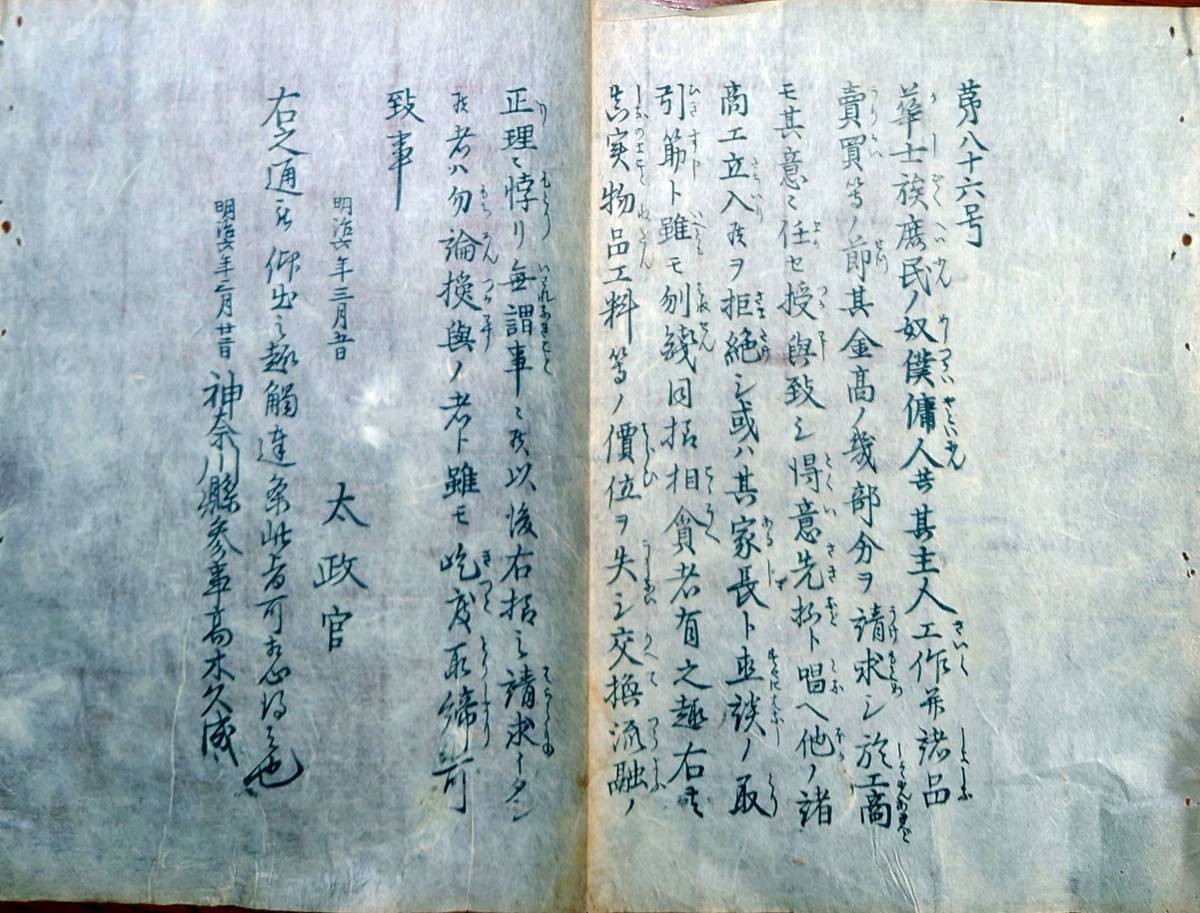 第八十六号
華士族庶民ノ奴僕傭人共其主人工作并諸品
賣買等ノ節其金高ノ幾部分ヲ請求シ於工商
モ其意ニ任セ授與致シ得意先抔ト唱ヘ他ノ諸
商工立入候ヲ拒絶シ或ハ其家長ト直談ノ取
引筋ト雖モ刎錢同様相貪者有之趣右ハ
其実物品工料等ノ價位ヲ失シ交換流融ノ
正理ニ悖リ無謂事ニ候以後右様之請求イタシ
候者ハ勿論授與ノ者ト雖モ屹度取締可
致事
明治六年三月五日
太政官
右之通被仰出之趣觸達条此旨可相心得者也
明治六年三月廿日 神奈川縣参事高木久成